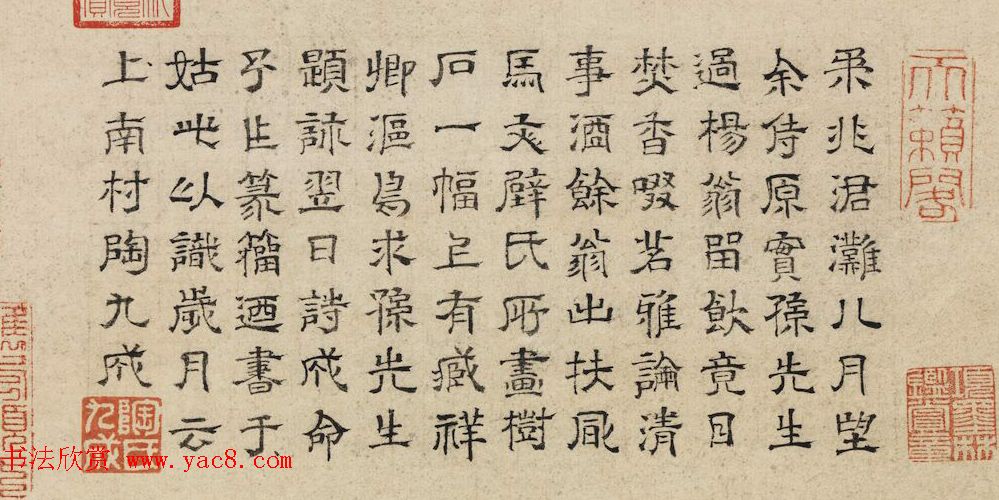 柔兆涒灘八月望
余侍原實孫先生
過楊翁留飲竟日
焚香啜茗雅論清
事酒餘翁出扶風
馬文璧氏所畫樹
石一幅上有臧祥
卿漚焉求孫先生
題詠翌日詩成命
予乍篆籀迺書于
上南村陶九成
姑此以識歲月云
天籟閣
項墨林鑑賞章
陶氏九成
书法欣赏 www.yac8.com